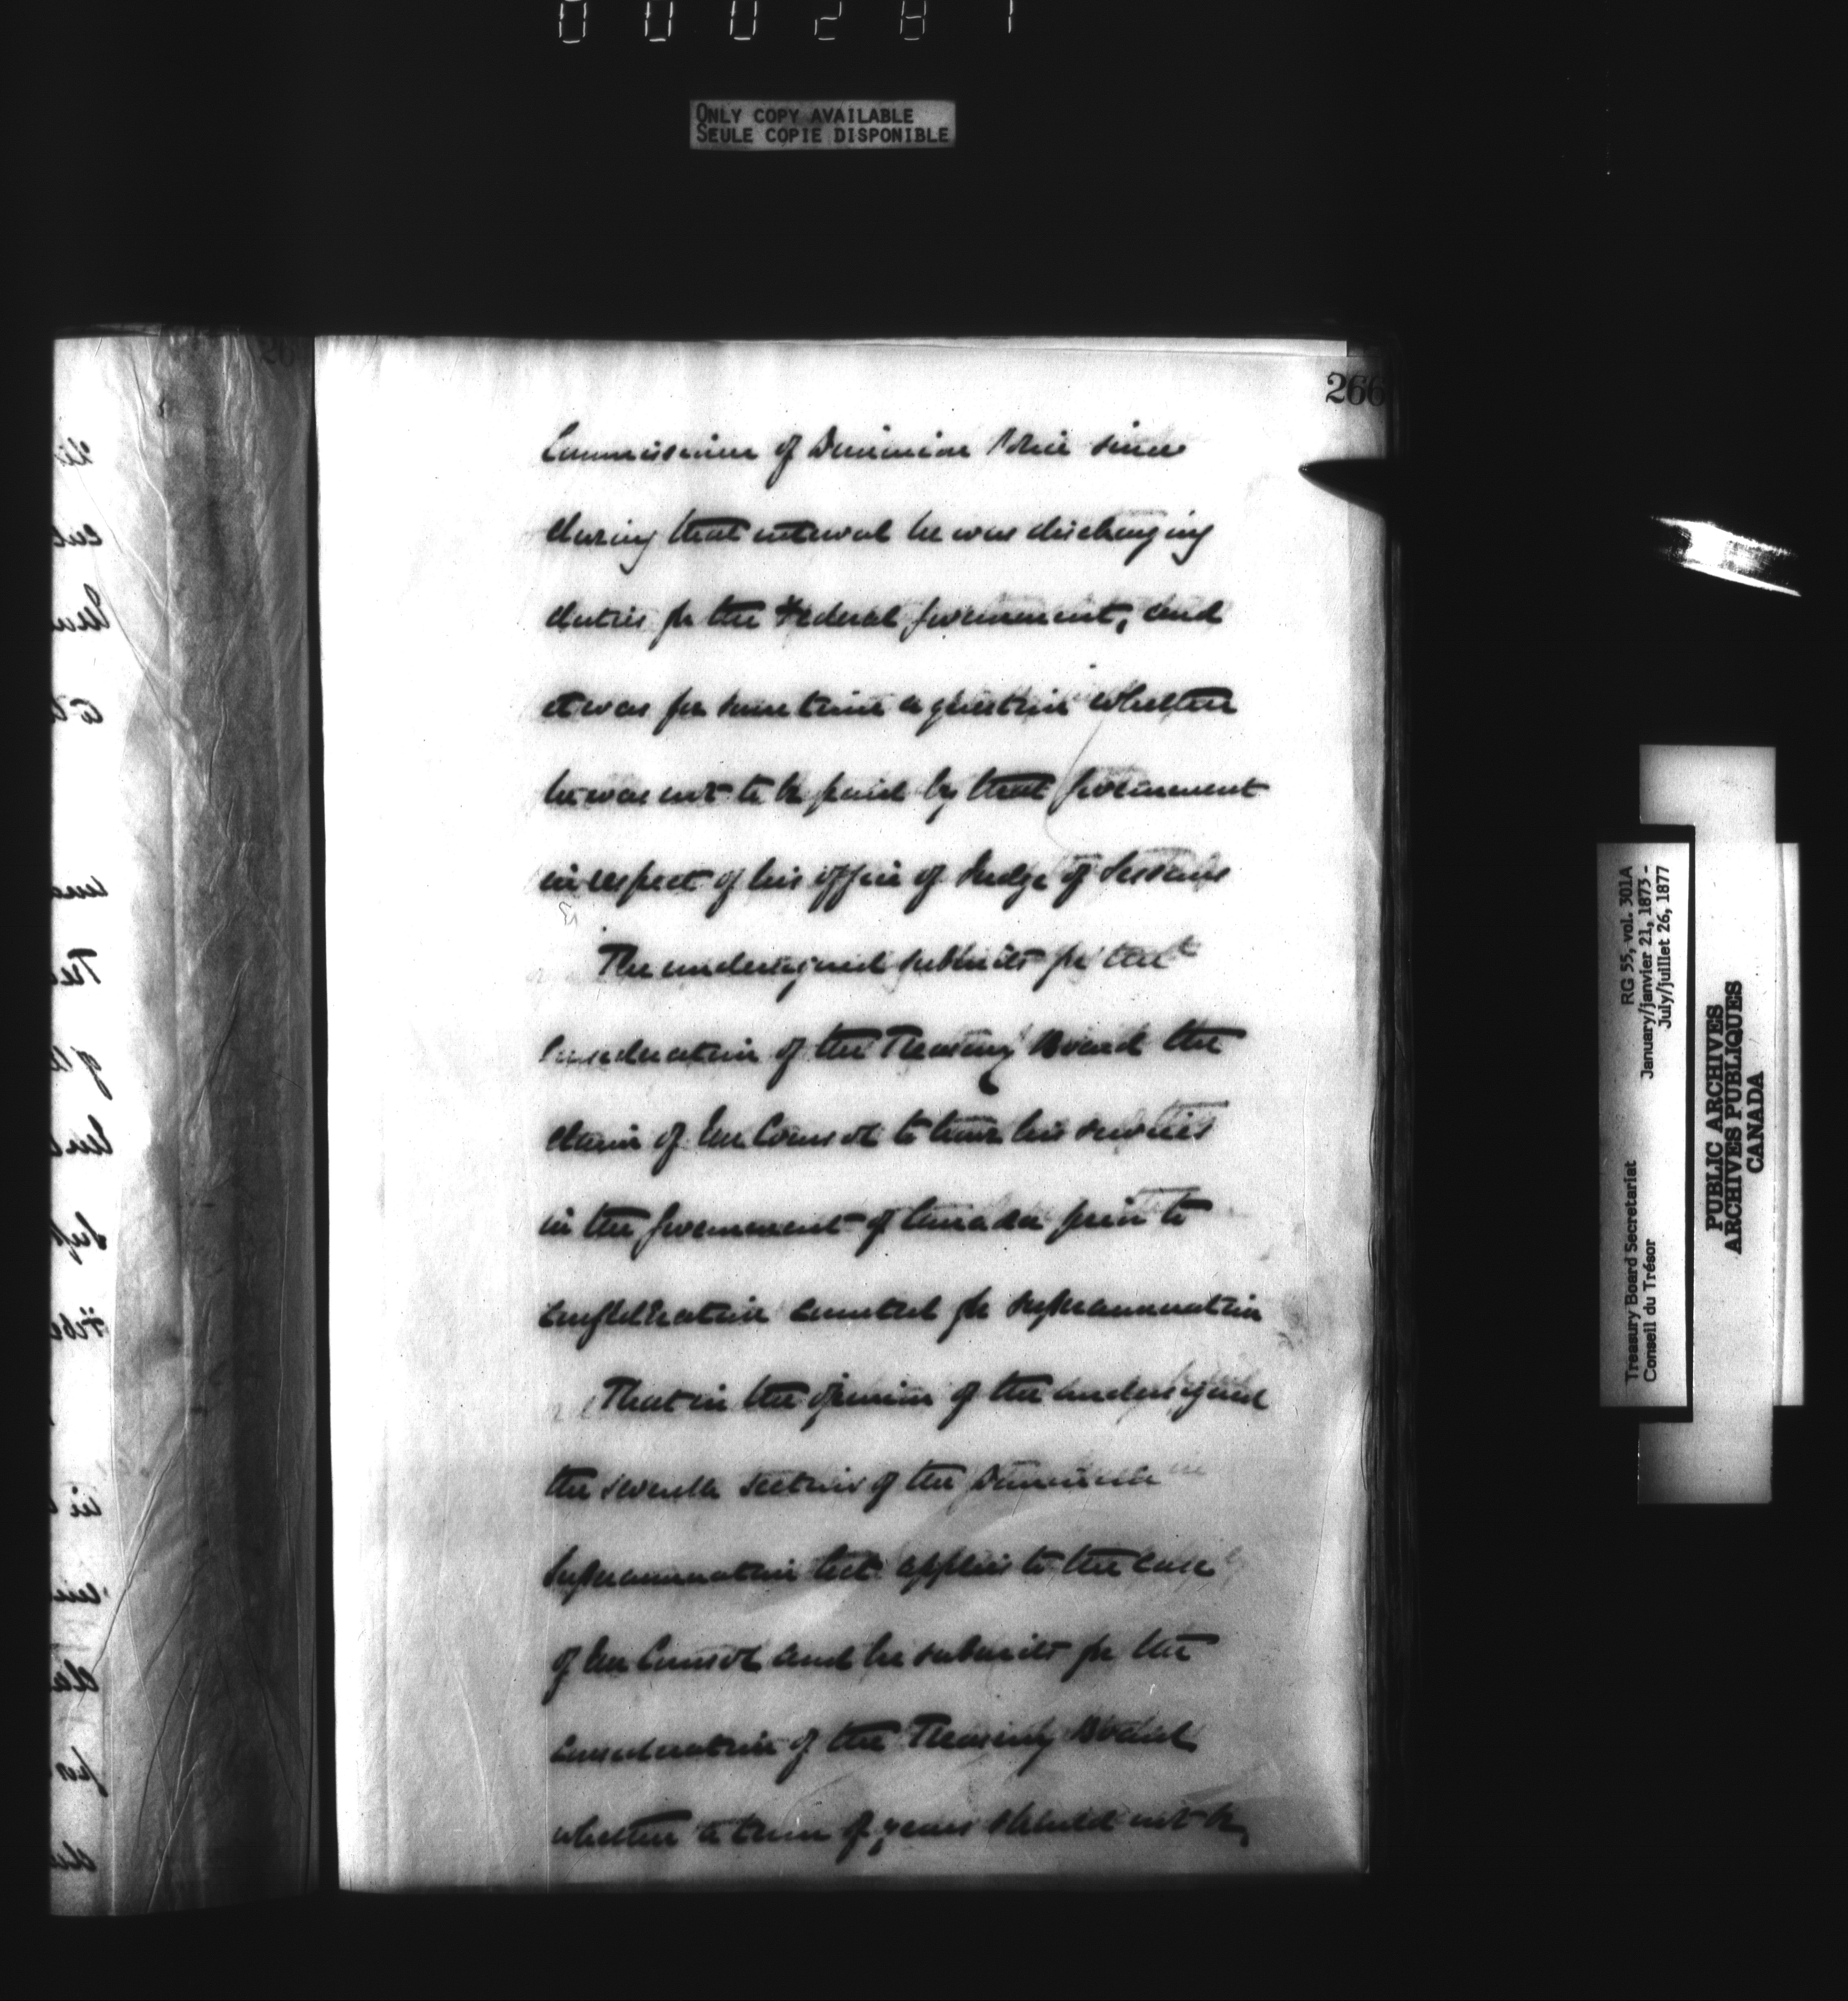 000281
ONLY COPY AVAILABLE
SEULE COPIE DISPONIBLE
266
Commissioner of Dominion Police since
during that interval he was discharging
duties for the Federal Government, and
it was for some time a question whether
he was not to be paid by that Government
in respect of his office of Judge of Sessions
The undersigned submits for the
Consideration of the Treasury Board the
claim of Mr Coursol to have his services
in the Government of Canada prior to
Confederation counted for superannuation
That in the opinion of the undersigned
the seventh section of the Dominion
Superannuation Act applies to the case
of Mr Coursol and he submits for the
consideration of the Treasury Board
whether a term of years should not be
RG 55, vol. 301A
January/janvier 21, 1873 -
July/juillet 26, 1877
Treasury Board Secretariat
Conseil du Trésor
PUBLIC ARCHIVES
ARCHIVES PUBLIQUES
CANADA